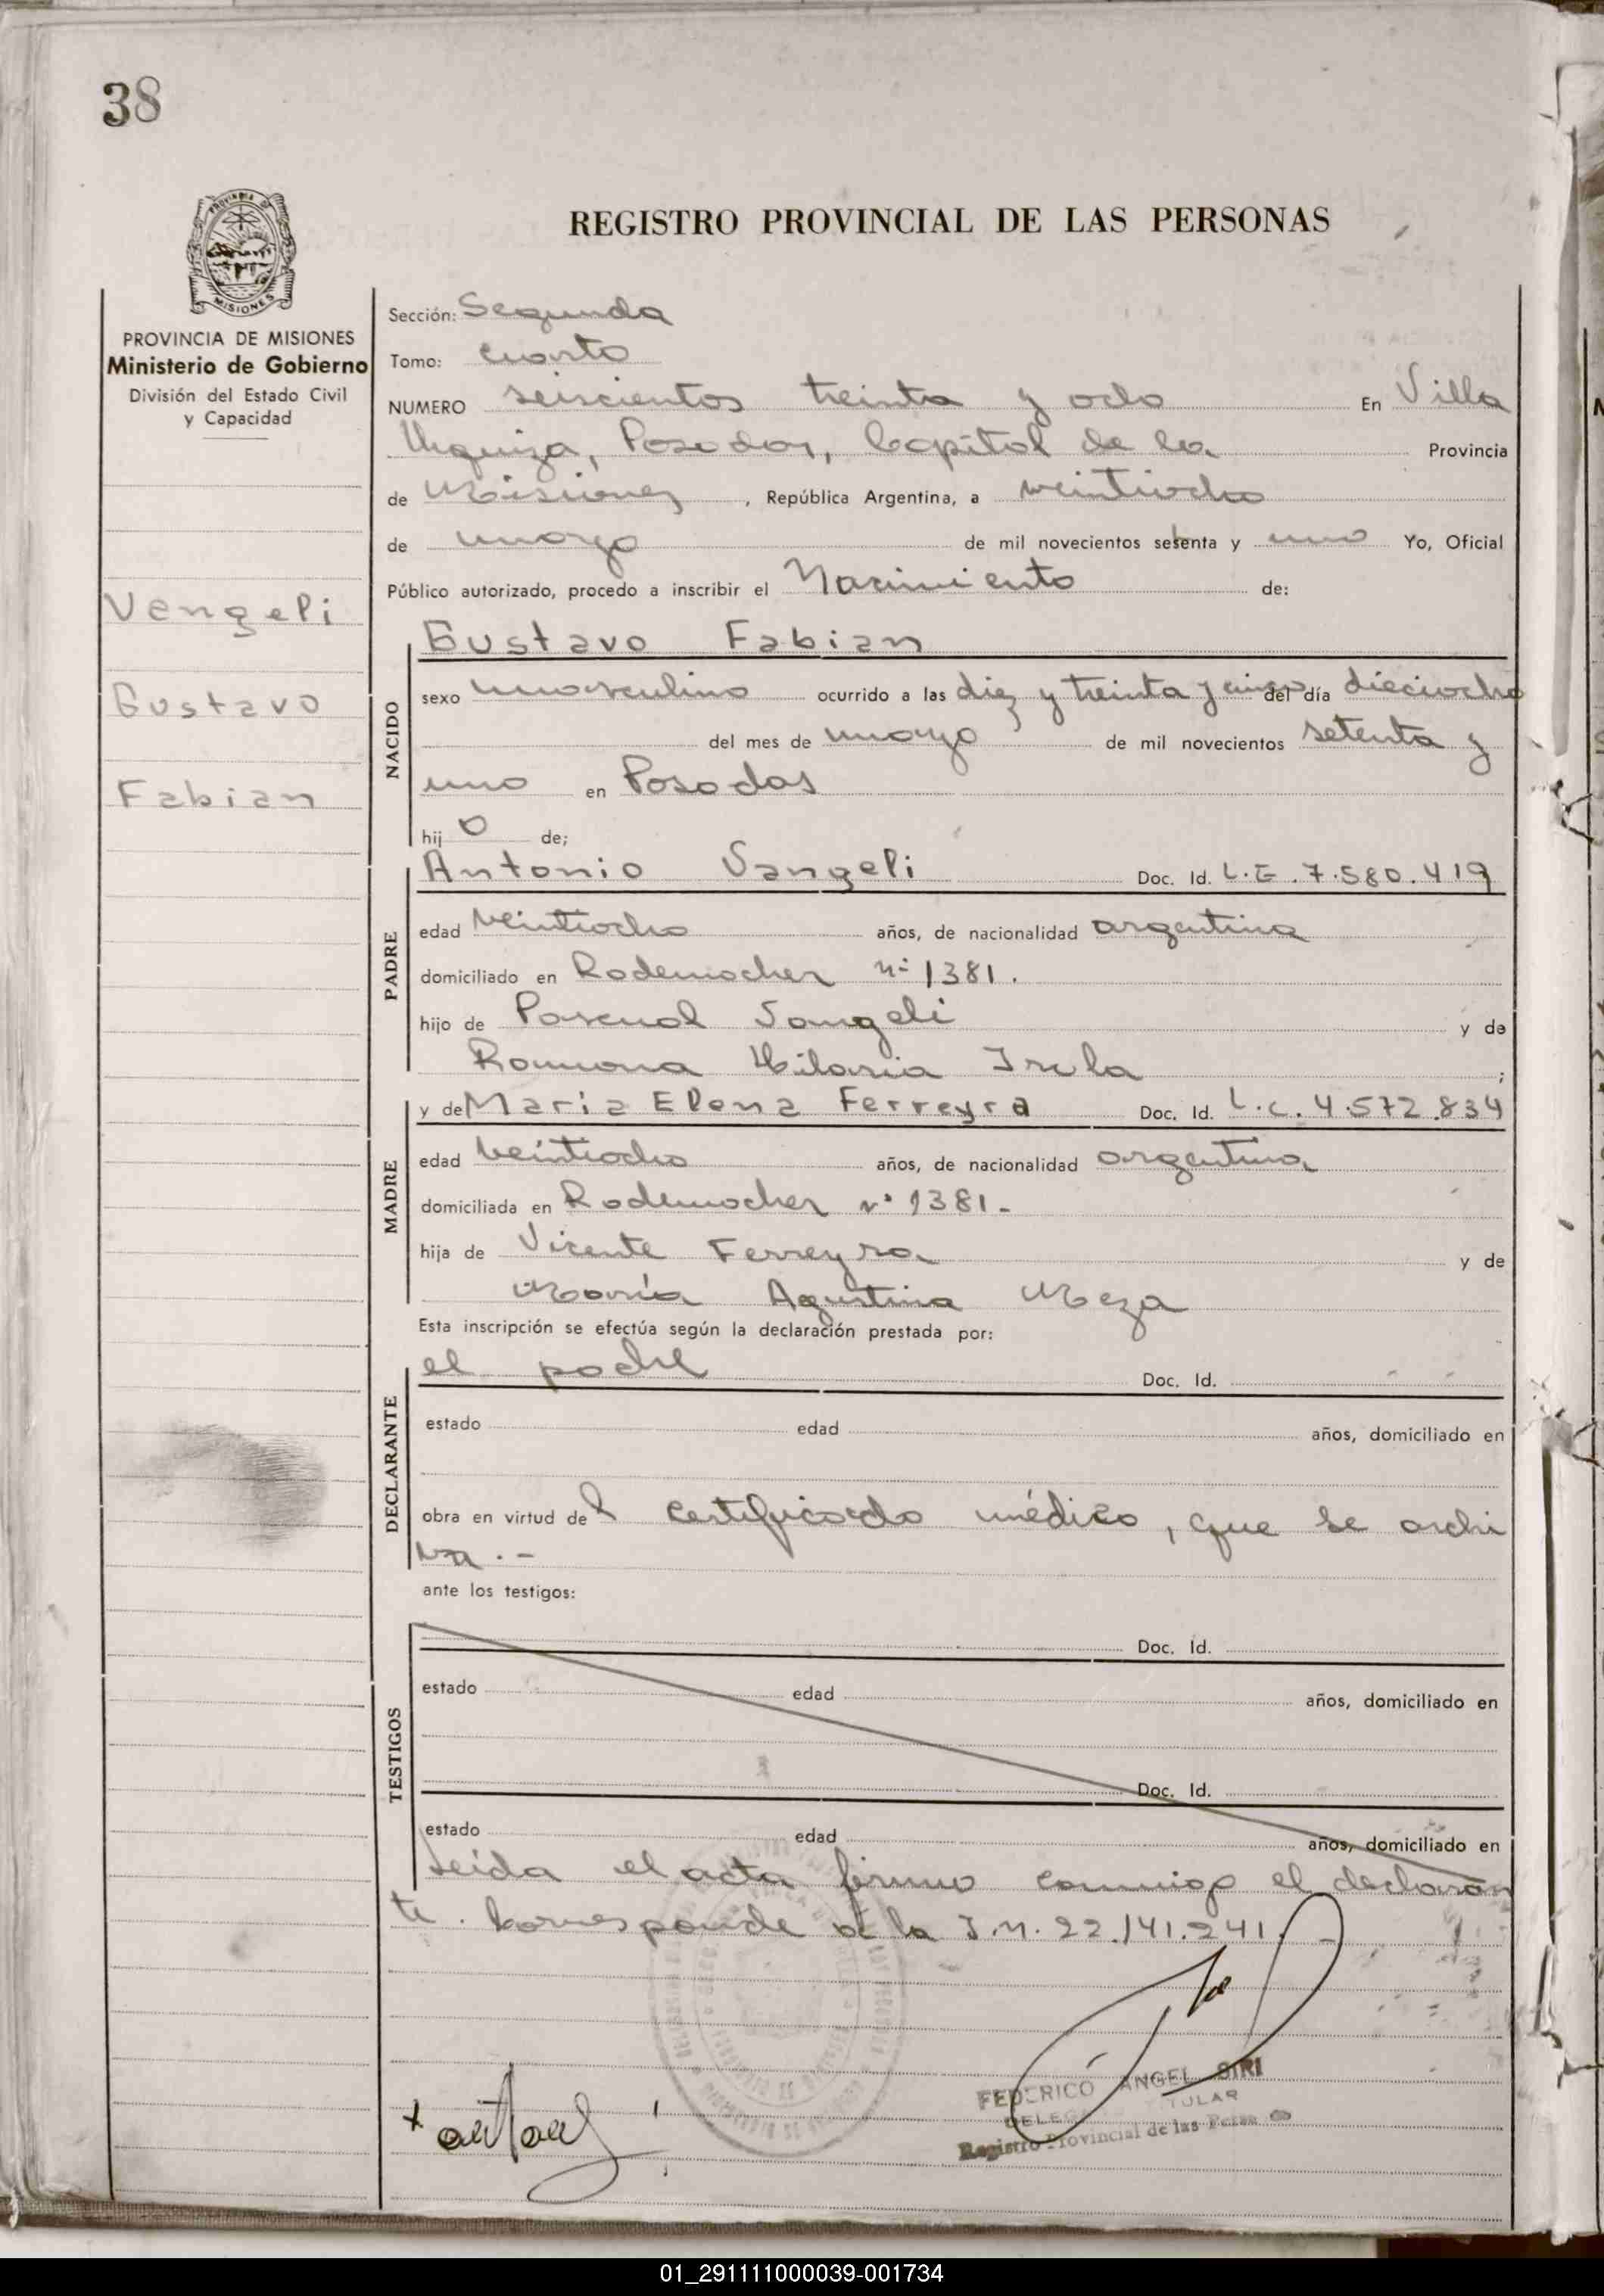 38
PROVINCIA DE MISIONES
Ministerio de Gobierno
División del Estado Civil
y Capacidad
Vengeli
Gustavo
Fabian
REGISTRO PROVINCIAL DE LAS PERSONAS
Sección: Segunda
Tomo: Cuarto
NUMERO seiscientos treinta y ocho En Villa
Urquiza, Posadas, Capital de la Provincia
de Misiones, República Argentina, a veintiocho
de marzo de mil novecientos setenta y uno Yo, Oficial
Público autorizado, procedo a inscribir el Nacimiento de:
NACIDO
Gustavo Fabian
sexo masculino ocurrido a las diez y treinta y cinco del día dieciocho
del mes de marzo de mil novecientos setenta y
uno en Posadas
hijo de;
PADRE
Antonio Vangeli Doc. Id. L.E. 7.580.419
edad veintiocho años, de nacionalidad argentina
domiciliado en Rademacher nº 1381.
hijo de Pascual Vangeli y de
Ramona Hilaria Irala;
MADRE
y de Maria Elena Ferreyra Doc. Id. L.C. 4.572.834
edad veintiocho años, de nacionalidad argentina
domiciliada en Rademacher nº 1381-
hija de Vicente Ferreyra y de
María Agustina Meza
Esta inscripción se efectúa según la declaración prestada por:
DECLARANTE
el padre Doc. Id.
estado edad años, domiciliado en
obra en virtud del certificado médico, que se archi
va.-
ante los testigos:
TESTIGOS
Doc. Id.
estado edad años, domiciliado en
Doc. Id.
estado edad años, domiciliado en
Leída el acta firma conmigo el declaran
te. Corresponde a la I.M. 22.141.241.-
FEDERICO ANGEL SIRI
DELEGADO TITULAR
Registro Provincial de las Personas
01_291111000039-001734